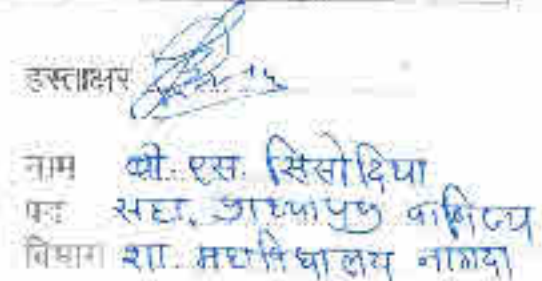 हस्ताक्षर
नाम बी. एस. सिसोदिया
पद सहा. प्राध्यापक वाणिज्य
विभाग शा. महाविद्यालय नागदा